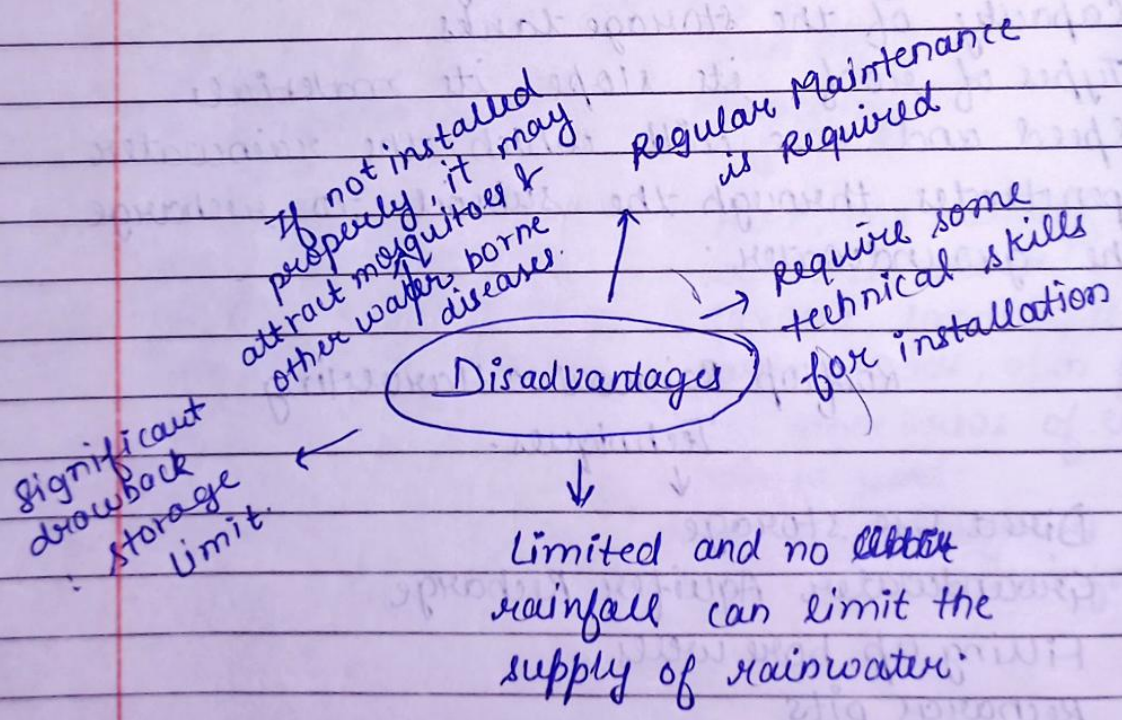 If not installed
properly, it may
attract mosquitoes &
other water borne
diseases.
Regular Maintenance
is Required
Require some
technical skills
for installation
Disadvantages
significant
drawback
: storage
limit.
Limited and no
rainfall can limit the
supply of rainwater.